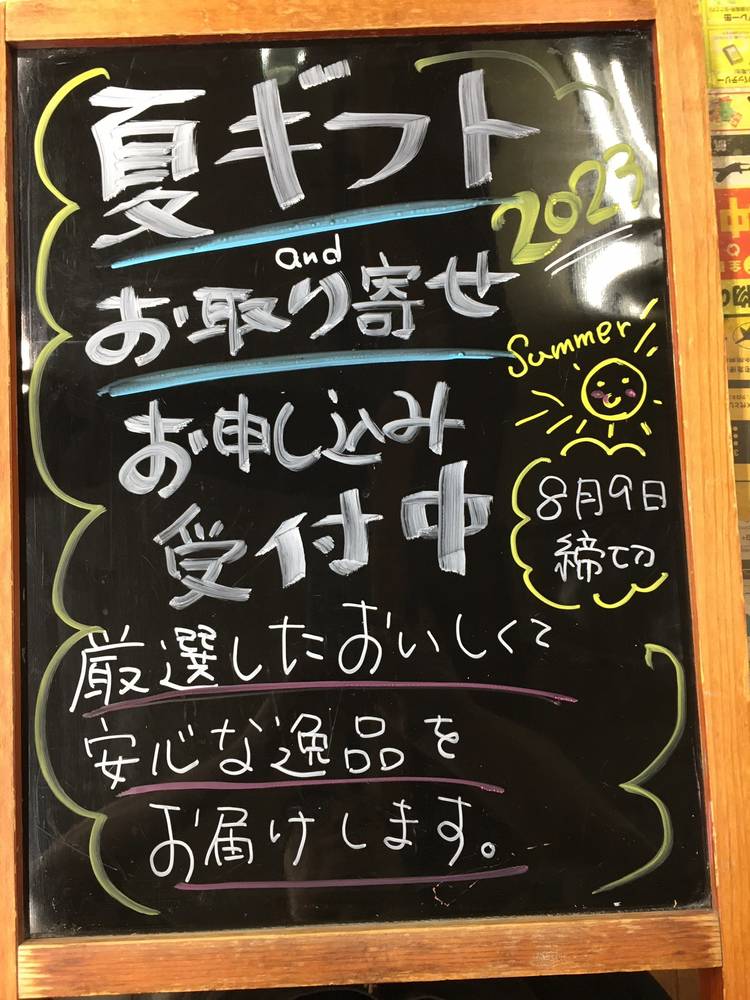 夏ギフト
2023
and
お取り寄せ
Summer
お申し込み
受付中
8月9日
締切
厳選したおいしくて
安心な逸品を
お届けします。